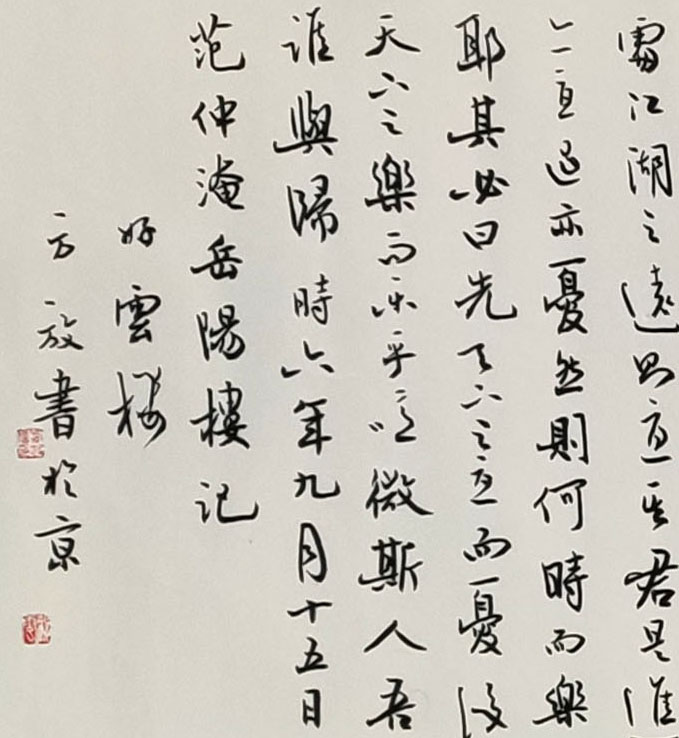 處江湖之遠則憂其君是進
亦憂退亦憂然則何時而樂
耶其必曰先天下之憂而憂後
天下之樂而樂乎噫微斯人吾
誰與歸時六年九月十五日
范仲淹岳陽樓記
好雲樓
方放書於京